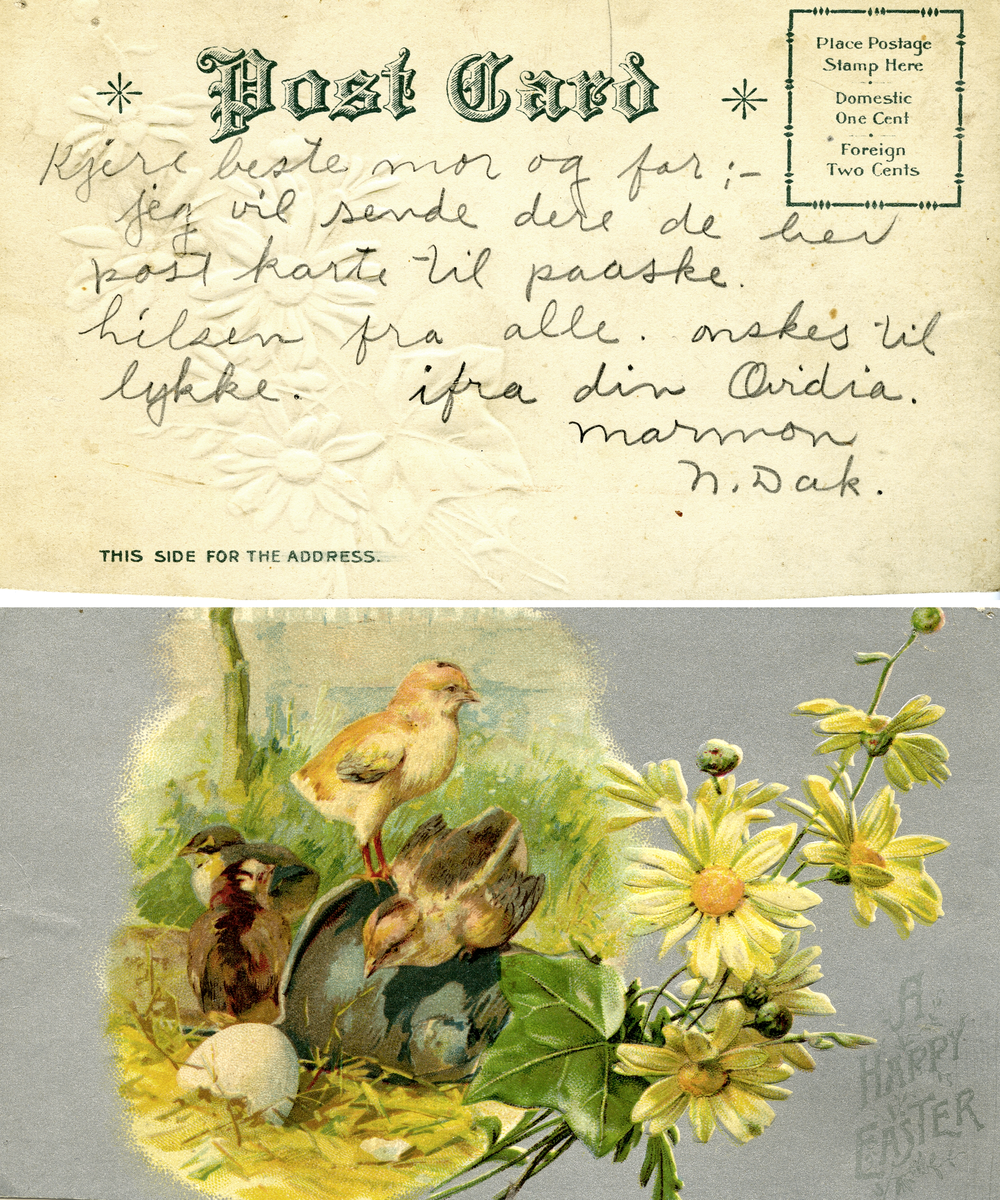 Post Card
Place Postage
Stamp Here
Domestic
One Cent
Foreign
Two Cents
Kjere beste mor og far ;-
jeg vil sende dere de her
post karte til paaske.
hilsen fra alle. onskes til
lykke. ifra din Ovidia.
marmon
N. Dak.
THIS SIDE FOR THE ADDRESS.
A
HAPPY
EASTER